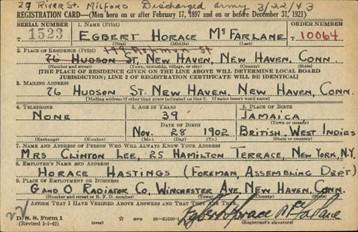 29 River St. Milford Discharged Army 3/22/43
REGISTRATION CARD—(Men born on or after February 17, 1897 and on or before December 31, 1921)
SERIAL NUMBER 1. NAME (Print) ORDER NUMBER
1523 EGBERT HORACE McFARLANE 10064
(First) (Middle) (Last)
2. PLACE OF RESIDENCE (Print)
76 HUDSON ST. NEW HAVEN, NEW HAVEN, CONN.
(Number and street) (Town, township, village, or city) (County) (State)
[THE PLACE OF RESIDENCE GIVEN ON THE LINE ABOVE WILL DETERMINE LOCAL BOARD
JURISDICTION; LINE 2 OF REGISTRATION CERTIFICATE WILL BE IDENTICAL]
3. MAILING ADDRESS
76 HUDSON ST. NEW HAVEN, NEW HAVEN, CONN.
4. TELEPHONE 5. AGE IN YEARS 6. PLACE OF BIRTH
NONE 39 JAMAICA
DATE OF BIRTH
NOV. 28 1902 BRITISH, WEST INDIES
7. NAME AND ADDRESS OF PERSON WHO WILL ALWAYS KNOW YOUR ADDRESS
MRS CLINTON LEE, 25 HAMILTON TERRACE, NEW YORK, N.Y.
8. EMPLOYER'S NAME AND ADDRESS
HORACE HASTINGS (FOREMAN, ASSEMBLING DEPT)
9. PLACE OF EMPLOYMENT OR BUSINESS
G AND O RADIATOR CO, WINCHESTER AVE. NEW HAVEN, CONN.
(Number and street or R. F. D. number) (Town) (County) (State)
I AFFIRM THAT I HAVE VERIFIED ABOVE ANSWERS AND THAT THEY ARE TRUE.
D. S. S. Form 1
(Revised 1-1-42) Egbert Horace McFarlane